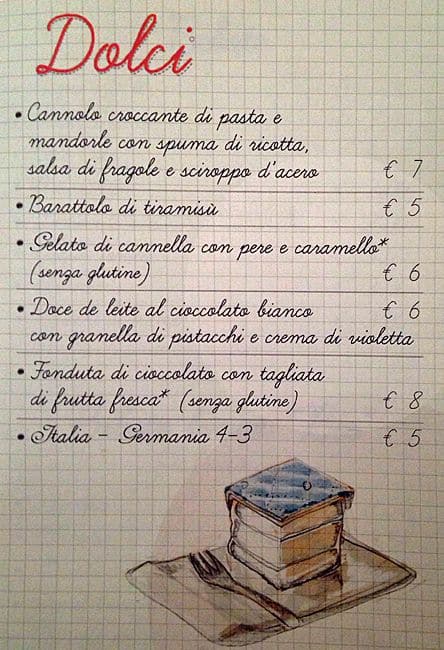 Dolci
• Cannolo croccante di pasta e
mandorle con spuma di ricotta,
salsa di fragole e sciroppo d'acero € 7
• Barattolo di tiramisù € 5
• Gelato di cannella con pere e caramello*
(senza glutine) € 6
• Doce de leite al cioccolato bianco € 6
con granella di pistacchi e crema di violetta
• Fonduta di cioccolato con tagliata
di frutta fresca* (senza glutine) € 8
• Italia - Germania 4-3 € 5